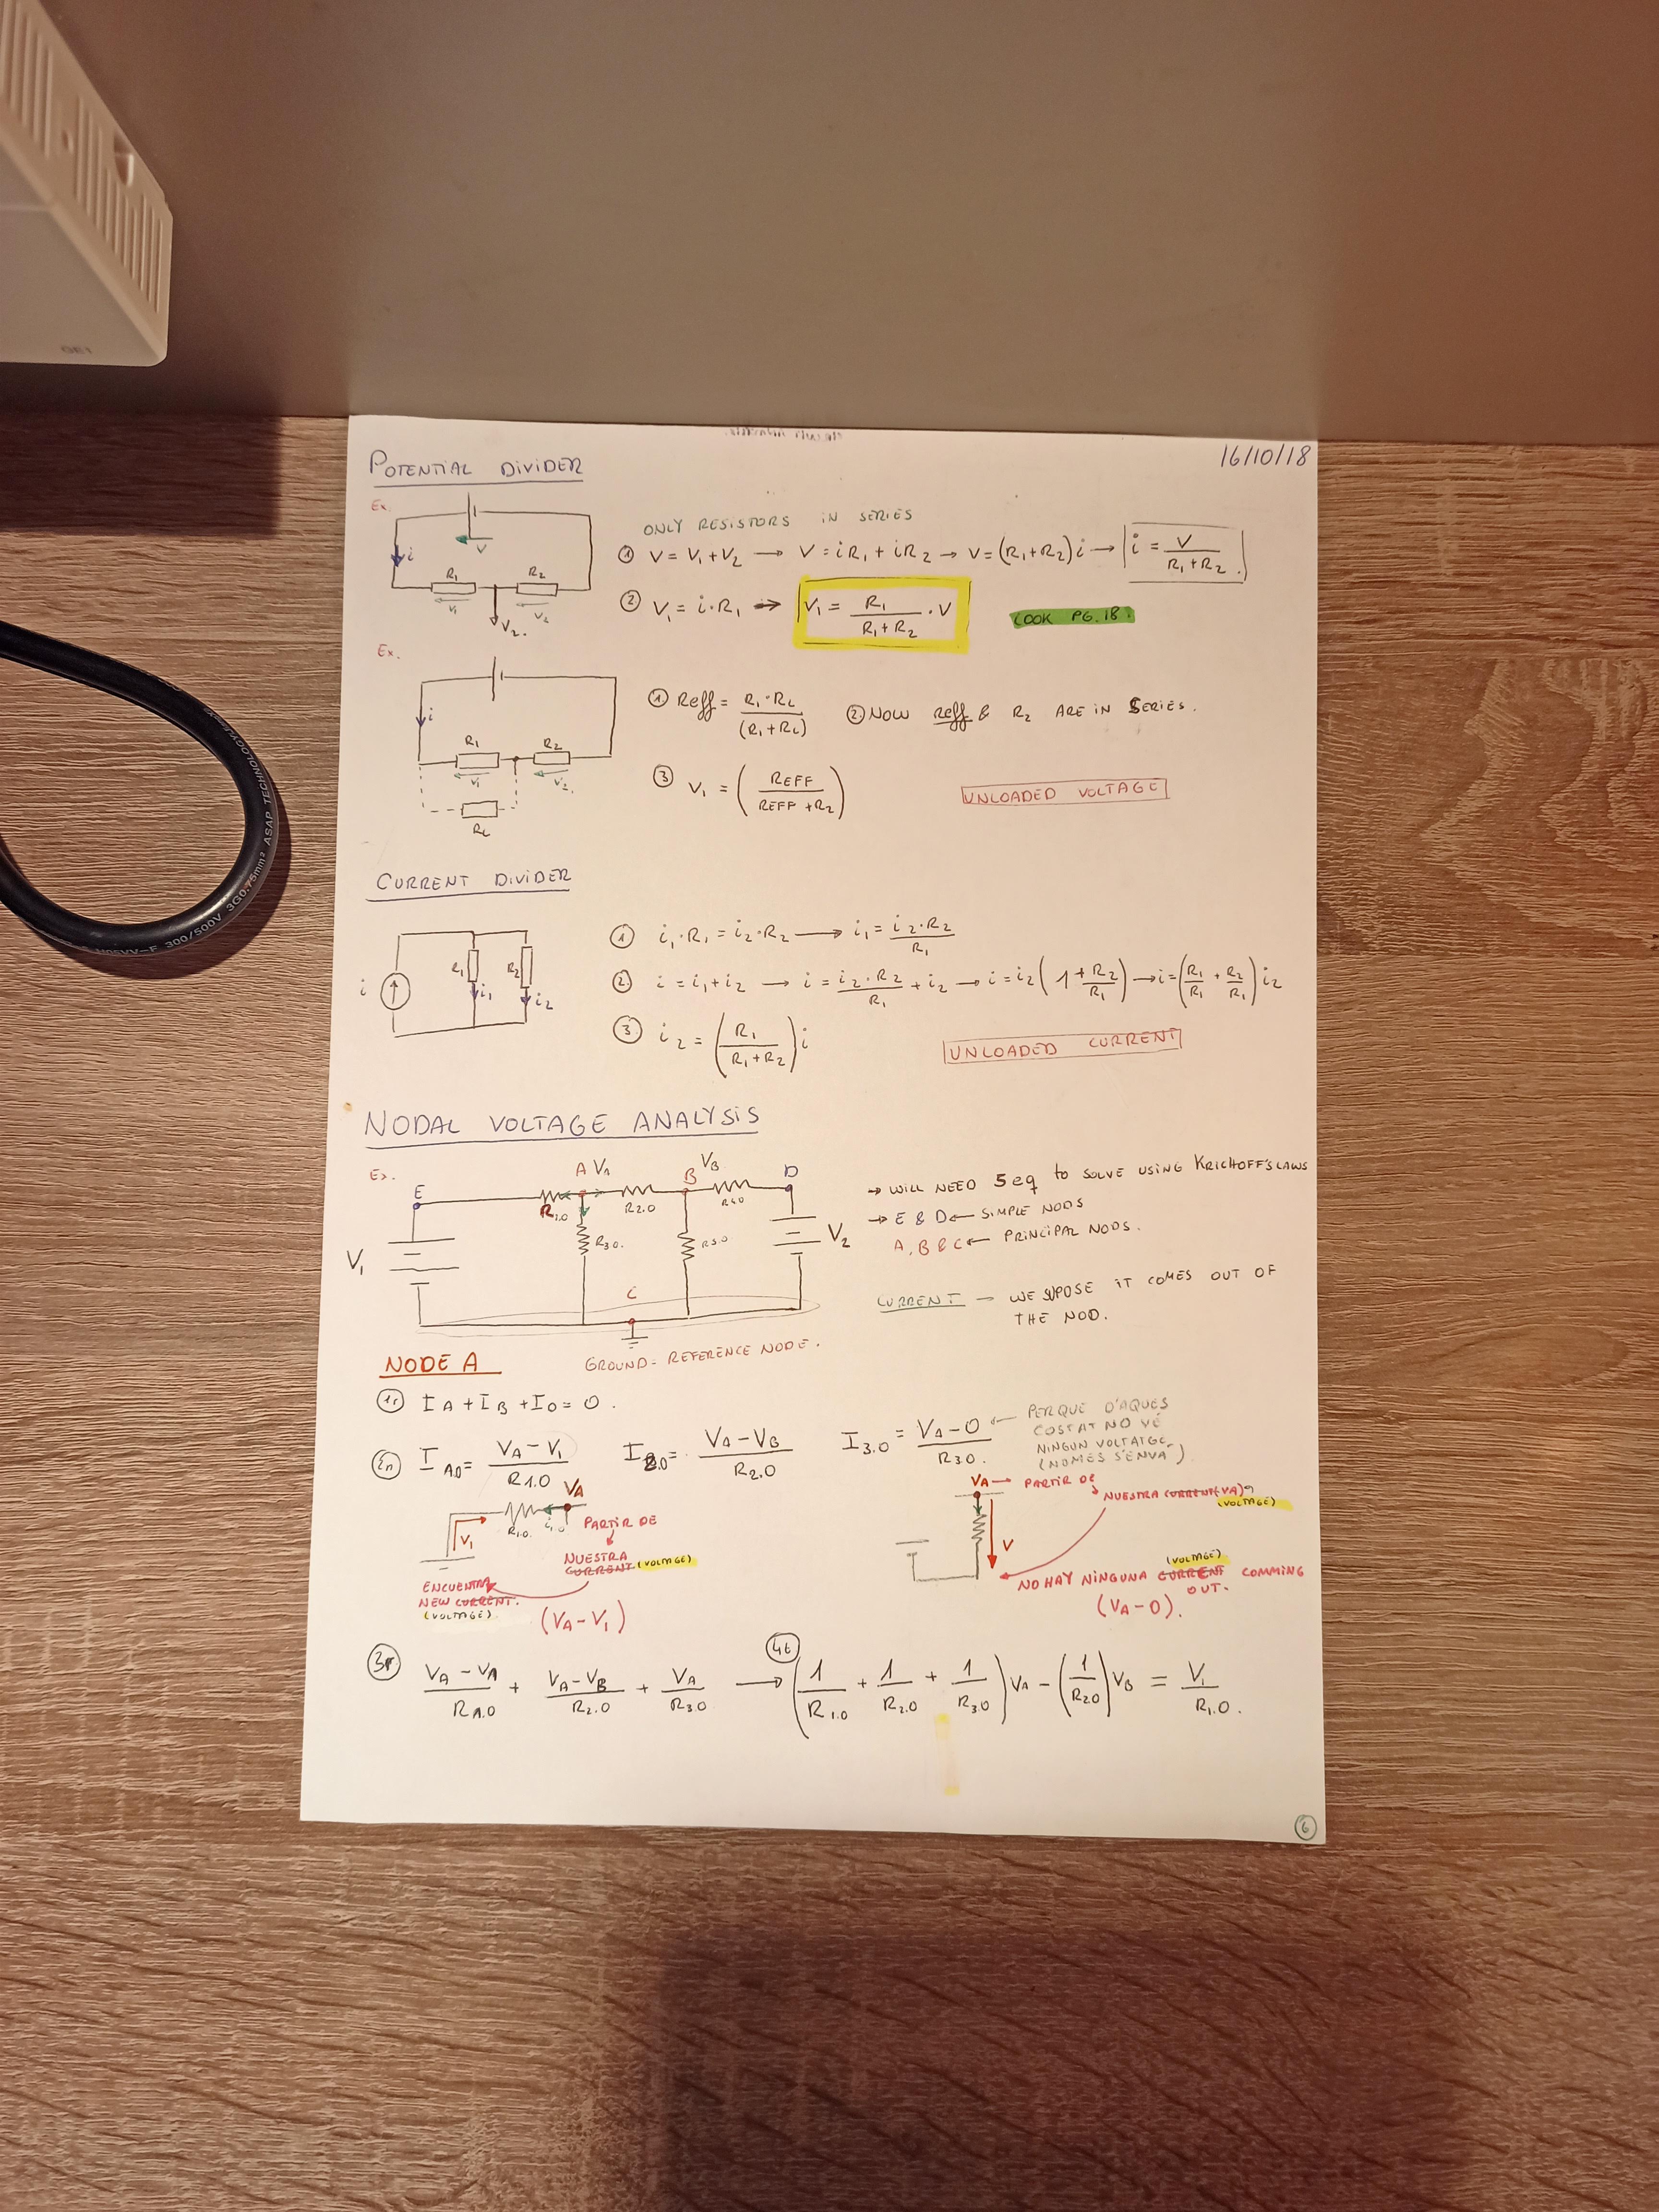 16/10/18
POTENTIAL DIVIDER
Ex.
V
i
R1
R2
V1
V2
V2.
ONLY RESISTORS IN SERIES
① V = V1 + V2 → V = iR1 + iR2 → V = (R1+R2)i → i = V/(R1+R2).
② V1 = i·R1 → V1 = R1/(R1+R2) · V
LOOK PG.18.
Ex.
i
R1
R2
V1
V2.
RL
① Reff = R1·RL/(R1+RL)
② NOW Reff & R2 ARE IN SERIES.
③ V1 = (REFF/(REFF+R2))
UNLOADED VOLTAGE
CURRENT DIVIDER
i
R1
R2
i1
i2
① i1·R1 = i2·R2 → i1 = i2·R2/R1
② i = i1+i2 → i = i2·R2/R1 + i2 → i = i2(1+R2/R1) → i = (R1/R1 + R2/R1) i2
③ i2 = (R1/(R1+R2)) i
UNLOADED CURRENT
NODAL VOLTAGE ANALYSIS
Ex.
E
A VA
VB
B
D
R1.0
R2.0
R4.0
R3.0.
R5.0
V1
V2
C
GROUND = REFERENCE NODE.
→ WILL NEED 5 eq to SOLVE USING KRICHOFF'S LAWS
→ E & D ← SIMPLE NODS
A, B & C ← PRINCIPAL NODS.
CURRENT → WE SUPOSE IT COMES OUT OF
THE NOD.
NODE A
1r IA + IB + IO = 0.
2n IA.0 = (VA-V1)/R1.0
I2.0 = (VA-VB)/R2.0
I3.0 = (VA-0)/R3.0.
← PERQUE D'AQUES
COSTAT NO VE
NINGUN VOLTATGE
(NOMES S'ENVA)
VA
V1
R1.0
i1.0
PARTIR DE
NUESTRA
CURRENT (VOLTAGE)
ENCUENTRA
NEW CURRENT.
(VOLTAGE)
(VA - V1)
VA → PARTIR DE
NUESTRA CURRENT (VA)
(VOLTAGE)
V
(VOLTAGE)
NO HAY NINGUNA CURRENT COMMING
OUT.
(VA-0).
3r (VA-VA)/RA.0 + (VA-VB)/R2.0 + VA/R3.0 → 4t (1/R1.0 + 1/R2.0 + 1/R3.0) VA - (1/R2.0) VB = V1/R1.0.
6
H05VV-F 300/500V 3G0.75mm² ASAP TECHNOLOGY